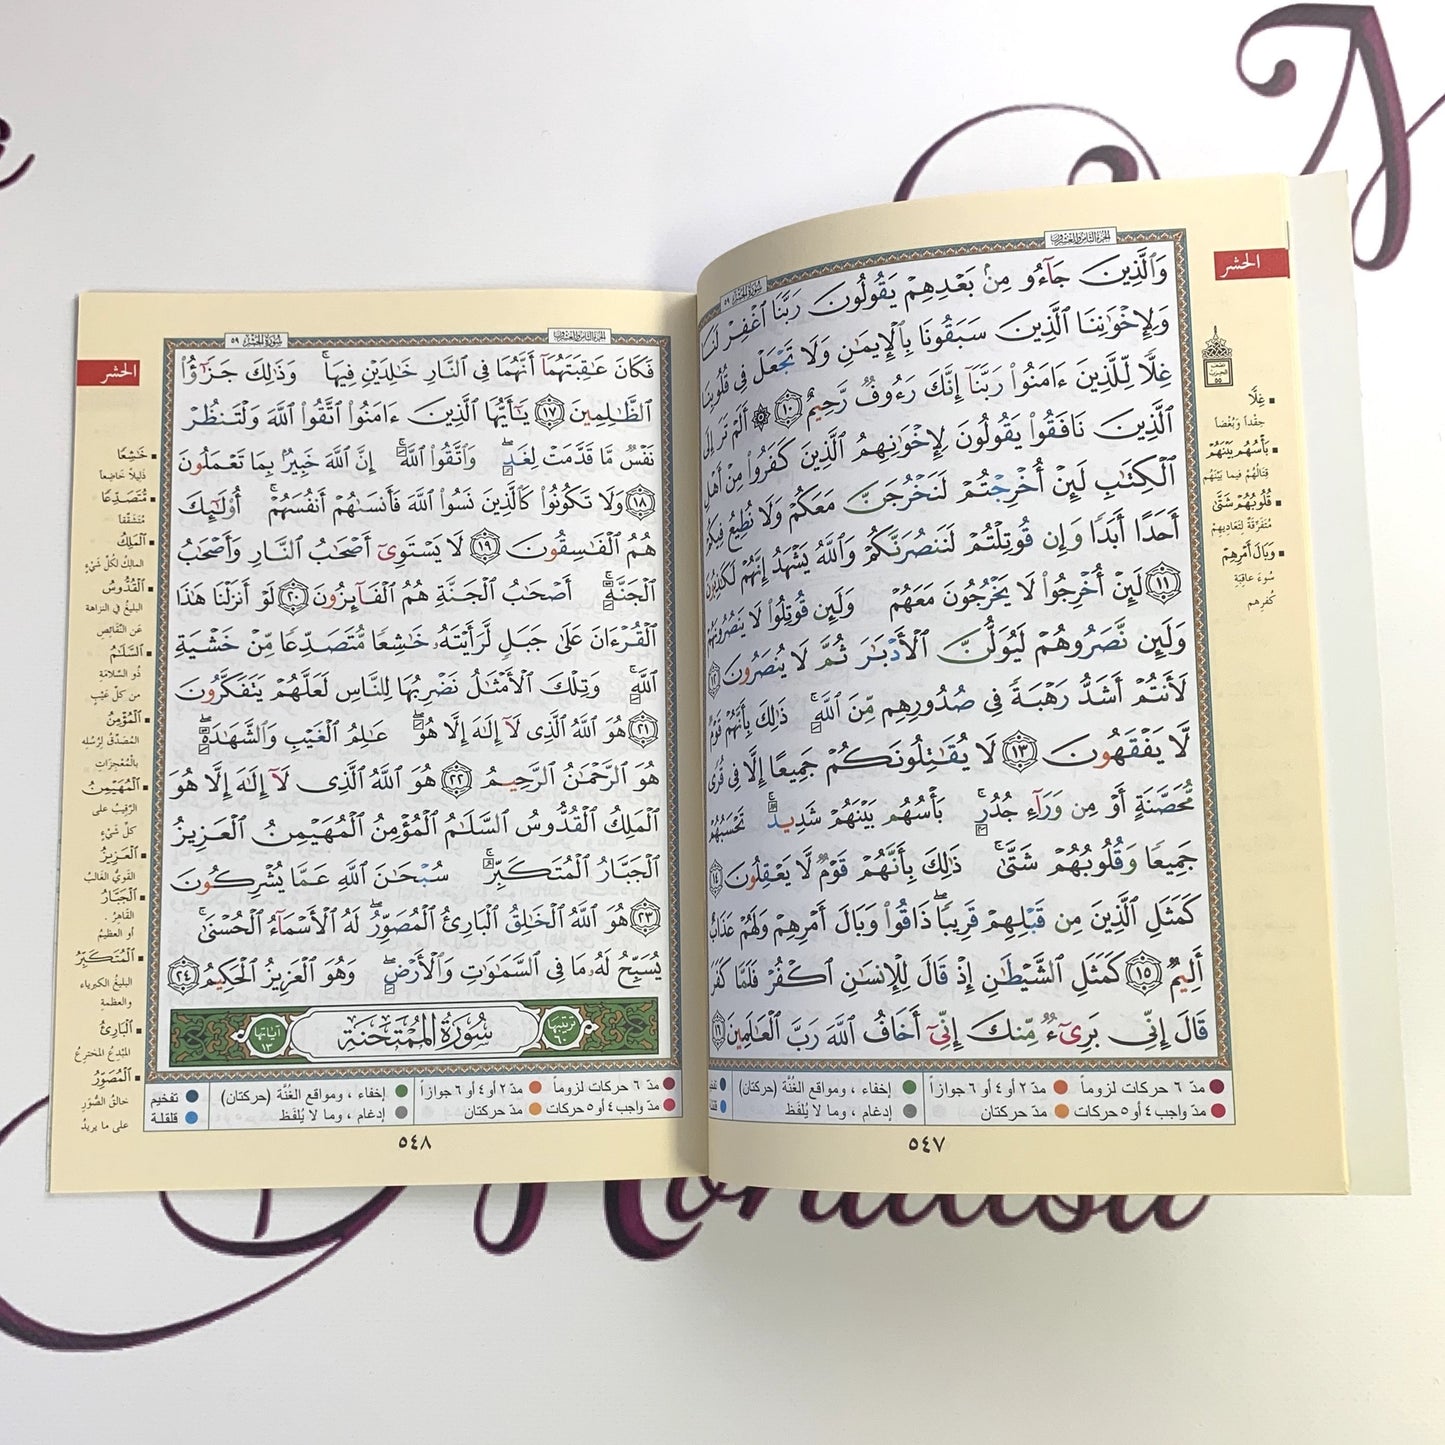 الجزء الثامن والعشرون
سورة الحشر ٥٩
الحشر
وَٱلَّذِينَ جَآءُو مِنۢ بَعْدِهِمْ يَقُولُونَ رَبَّنَا ٱغْفِرْ لَنَا
وَلِإِخْوَٰنِنَا ٱلَّذِينَ سَبَقُونَا بِٱلْإِيمَٰنِ وَلَا تَجْعَلْ فِى قُلُوبِنَا
غِلًّا لِّلَّذِينَ ءَامَنُوا۟ رَبَّنَآ إِنَّكَ رَءُوفٌ رَّحِيمٌ ١٠ ۞ أَلَمْ تَرَ إِلَى
ٱلَّذِينَ نَافَقُوا۟ يَقُولُونَ لِإِخْوَٰنِهِمُ ٱلَّذِينَ كَفَرُوا۟ مِنْ أَهْلِ
ٱلْكِتَٰبِ لَئِنْ أُخْرِجْتُمْ لَنَخْرُجَنَّ مَعَكُمْ وَلَا نُطِيعُ فِيكُمْ
أَحَدًا أَبَدًا وَإِن قُوتِلْتُمْ لَنَنصُرَنَّكُمْ وَٱللَّهُ يَشْهَدُ إِنَّهُمْ لَكَٰذِبُونَ
١١ لَئِنْ أُخْرِجُوا۟ لَا يَخْرُجُونَ مَعَهُمْ وَلَئِن قُوتِلُوا۟ لَا يَنصُرُونَهُمْ
وَلَئِن نَّصَرُوهُمْ لَيُوَلُّنَّ ٱلْأَدْبَٰرَ ثُمَّ لَا يُنصَرُونَ ١٢
لَأَنتُمْ أَشَدُّ رَهْبَةً فِى صُدُورِهِم مِّنَ ٱللَّهِ ۚ ذَٰلِكَ بِأَنَّهُمْ قَوْمٌ
لَّا يَفْقَهُونَ ١٣ لَا يُقَٰتِلُونَكُمْ جَمِيعًا إِلَّا فِى قُرًى
مُّحَصَّنَةٍ أَوْ مِن وَرَآءِ جُدُرٍۭ ۚ بَأْسُهُم بَيْنَهُمْ شَدِيدٌ ۚ تَحْسَبُهُمْ
جَمِيعًا وَقُلُوبُهُمْ شَتَّىٰ ۚ ذَٰلِكَ بِأَنَّهُمْ قَوْمٌ لَّا يَعْقِلُونَ ١٤
كَمَثَلِ ٱلَّذِينَ مِن قَبْلِهِمْ قَرِيبًا ۖ ذَاقُوا۟ وَبَالَ أَمْرِهِمْ وَلَهُمْ عَذَابٌ
أَلِيمٌ ١٥ كَمَثَلِ ٱلشَّيْطَٰنِ إِذْ قَالَ لِلْإِنسَٰنِ ٱكْفُرْ فَلَمَّا كَفَرَ
قَالَ إِنِّى بَرِىٓءٌ مِّنكَ إِنِّىٓ أَخَافُ ٱللَّهَ رَبَّ ٱلْعَٰلَمِينَ ١٦
غِلًّا
حِقْداً وَبُغْضاً
بَأْسُهُم بَيْنَهُمْ
قِتَالُهُمْ فِيمَا بَيْنَهُمْ
قُلُوبُهُمْ شَتَّىٰ
مُتَفَرِّقَةٌ لِتَعَادِيهِمْ
وَبَالَ أَمْرِهِمْ
سُوءَ عَاقِبَةِ
كُفْرِهِم
مدّ ٦ حركات لزوماً مدّ ٢ أو ٤ أو ٦ جوازاً إخفاء ، ومواقع الغُنَّة (حركتان)
مدّ واجب ٤ أو ٥ حركات مدّ حركتان إدغام ، وما لا يُلفَظ
٥٤٧
الجزء الثامن والعشرون
سورة الحشر ٥٩
الحشر
فَكَانَ عَٰقِبَتَهُمَآ أَنَّهُمَا فِى ٱلنَّارِ خَٰلِدَيْنِ فِيهَا ۚ وَذَٰلِكَ جَزَٰٓؤُا۟
ٱلظَّٰلِمِينَ ١٧ يَٰٓأَيُّهَا ٱلَّذِينَ ءَامَنُوا۟ ٱتَّقُوا۟ ٱللَّهَ وَلْتَنظُرْ
نَفْسٌ مَّا قَدَّمَتْ لِغَدٍ ۖ وَٱتَّقُوا۟ ٱللَّهَ ۚ إِنَّ ٱللَّهَ خَبِيرٌۢ بِمَا تَعْمَلُونَ
١٨ وَلَا تَكُونُوا۟ كَٱلَّذِينَ نَسُوا۟ ٱللَّهَ فَأَنسَىٰهُمْ أَنفُسَهُمْ ۚ أُو۟لَٰٓئِكَ
هُمُ ٱلْفَٰسِقُونَ ١٩ لَا يَسْتَوِىٓ أَصْحَٰبُ ٱلنَّارِ وَأَصْحَٰبُ
ٱلْجَنَّةِ ۚ أَصْحَٰبُ ٱلْجَنَّةِ هُمُ ٱلْفَآئِزُونَ ٢٠ لَوْ أَنزَلْنَا هَٰذَا
ٱلْقُرْءَانَ عَلَىٰ جَبَلٍ لَّرَأَيْتَهُۥ خَٰشِعًا مُّتَصَدِّعًا مِّنْ خَشْيَةِ
ٱللَّهِ ۚ وَتِلْكَ ٱلْأَمْثَٰلُ نَضْرِبُهَا لِلنَّاسِ لَعَلَّهُمْ يَتَفَكَّرُونَ
٢١ هُوَ ٱللَّهُ ٱلَّذِى لَآ إِلَٰهَ إِلَّا هُوَ ۖ عَٰلِمُ ٱلْغَيْبِ وَٱلشَّهَٰدَةِ ۖ
هُوَ ٱلرَّحْمَٰنُ ٱلرَّحِيمُ ٢٢ هُوَ ٱللَّهُ ٱلَّذِى لَآ إِلَٰهَ إِلَّا هُوَ
ٱلْمَلِكُ ٱلْقُدُّوسُ ٱلسَّلَٰمُ ٱلْمُؤْمِنُ ٱلْمُهَيْمِنُ ٱلْعَزِيزُ
ٱلْجَبَّارُ ٱلْمُتَكَبِّرُ ۚ سُبْحَٰنَ ٱللَّهِ عَمَّا يُشْرِكُونَ
٢٣ هُوَ ٱللَّهُ ٱلْخَٰلِقُ ٱلْبَارِئُ ٱلْمُصَوِّرُ ۖ لَهُ ٱلْأَسْمَآءُ ٱلْحُسْنَىٰ ۚ
يُسَبِّحُ لَهُۥ مَا فِى ٱلسَّمَٰوَٰتِ وَٱلْأَرْضِ ۖ وَهُوَ ٱلْعَزِيزُ ٱلْحَكِيمُ ٢٤
ترتيبها ٦٠ سُورَةُ المُمْتَحنَةِ آياتها ١٣
خَٰشِعًا
ذَلِيلاً خَاضِعاً
مُّتَصَدِّعًا
مُتَشَقِّقاً
ٱلْمَلِكُ
المالِكُ لكُلِّ شَيْءٍ
ٱلْقُدُّوسُ
البليغُ في النزاهة
عَنِ النَّقَائِصِ
ٱلسَّلَٰمُ
ذُو السَّلامَةِ
من كلِّ عَيْبٍ
ٱلْمُؤْمِنُ
المُصَدِّقُ لِرُسُلِهِ
بالْمُعْجِزَاتِ
ٱلْمُهَيْمِنُ
الرَّقِيبُ على
كلِّ شَيْءٍ
ٱلْعَزِيزُ
القَوِيُّ الغَالبُ
ٱلْجَبَّارُ
القَاهِرُ .
أو العظيمُ
ٱلْمُتَكَبِّرُ
البليغُ الكبرياء
والعظمةِ
ٱلْبَارِئُ
المُبْدِعُ المخترعُ
ٱلْمُصَوِّرُ
خالقُ الصُّوَرِ
على ما يريدُ
مدّ ٦ حركات لزوماً مدّ ٢ أو ٤ أو ٦ جوازاً إخفاء ، ومواقع الغُنَّة (حركتان) تفخيم
مدّ واجب ٤ أو ٥ حركات مدّ حركتان إدغام ، وما لا يُلفَظ قلقلة
٥٤٨